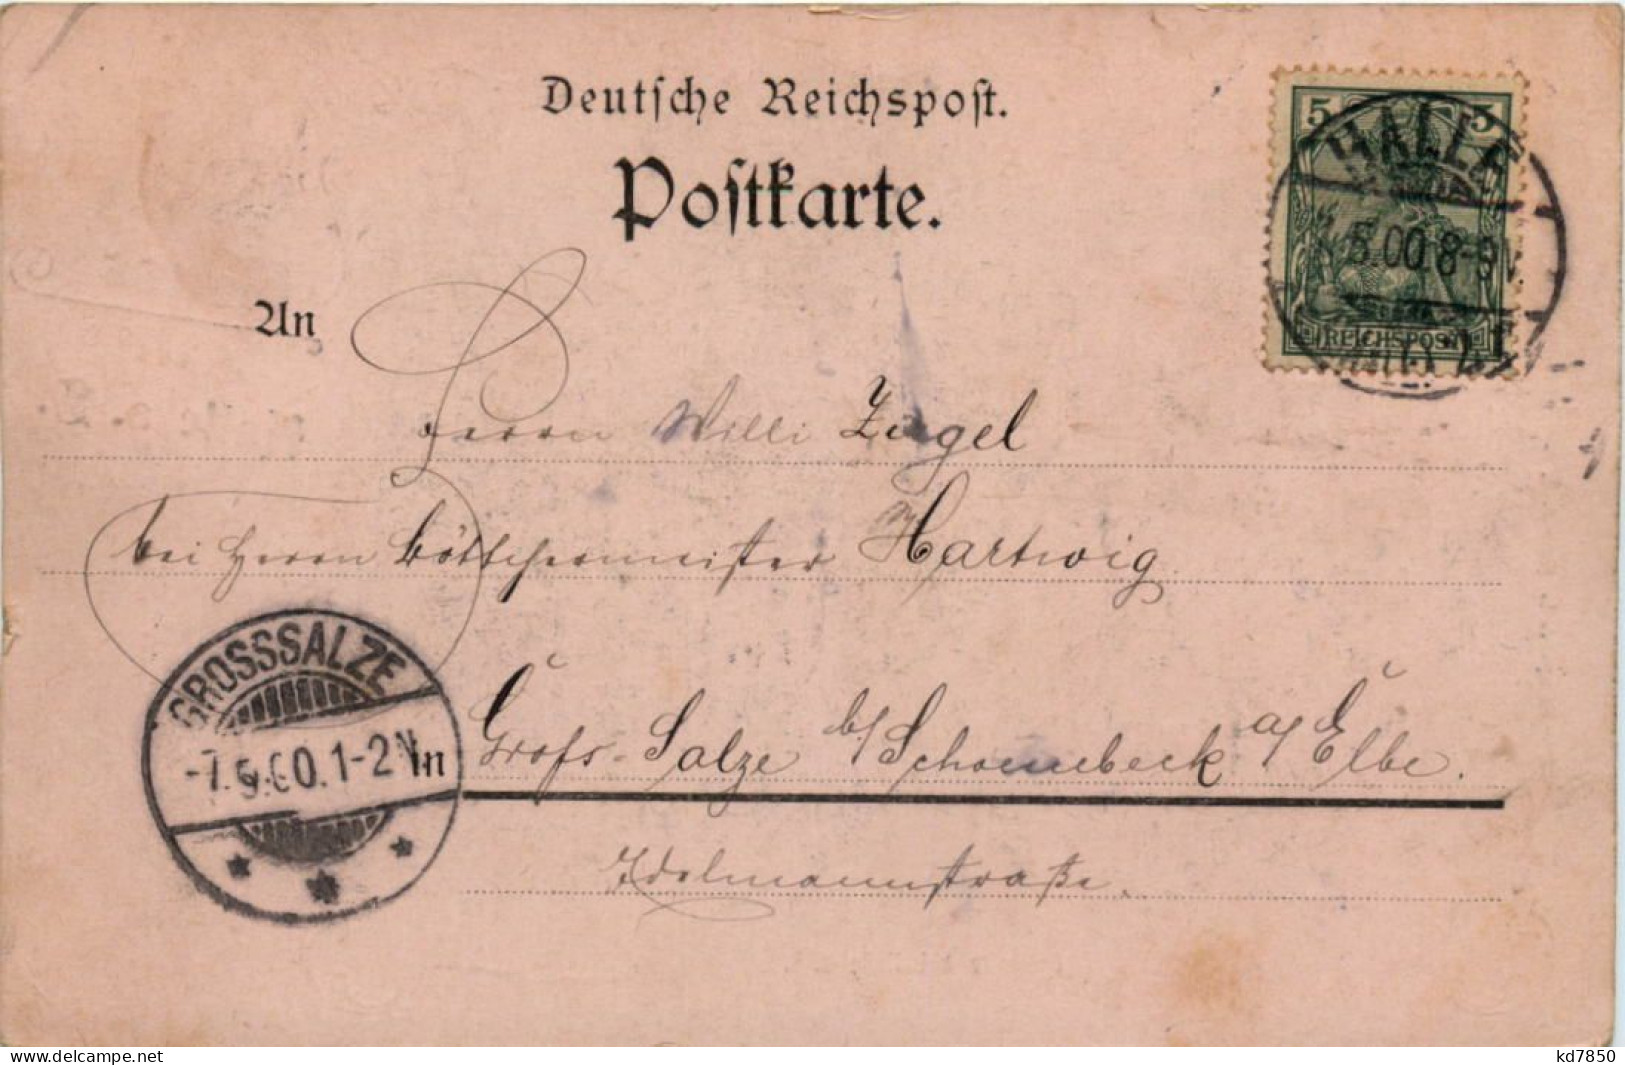 Deutsche Reichspost.
Postkarte.
5 5
HALLE
5.00.8-9V.
REICHSPOST
An
Herrn Willi Zugel
bei Herrn Böttchermeister Hartwig
GROSSSALZE
-7.5.00.1-2N
in Groß-Salze b/Schoenebeck a/Elbe.
Edelmannstraße.
www.delcampe.net
kd7850